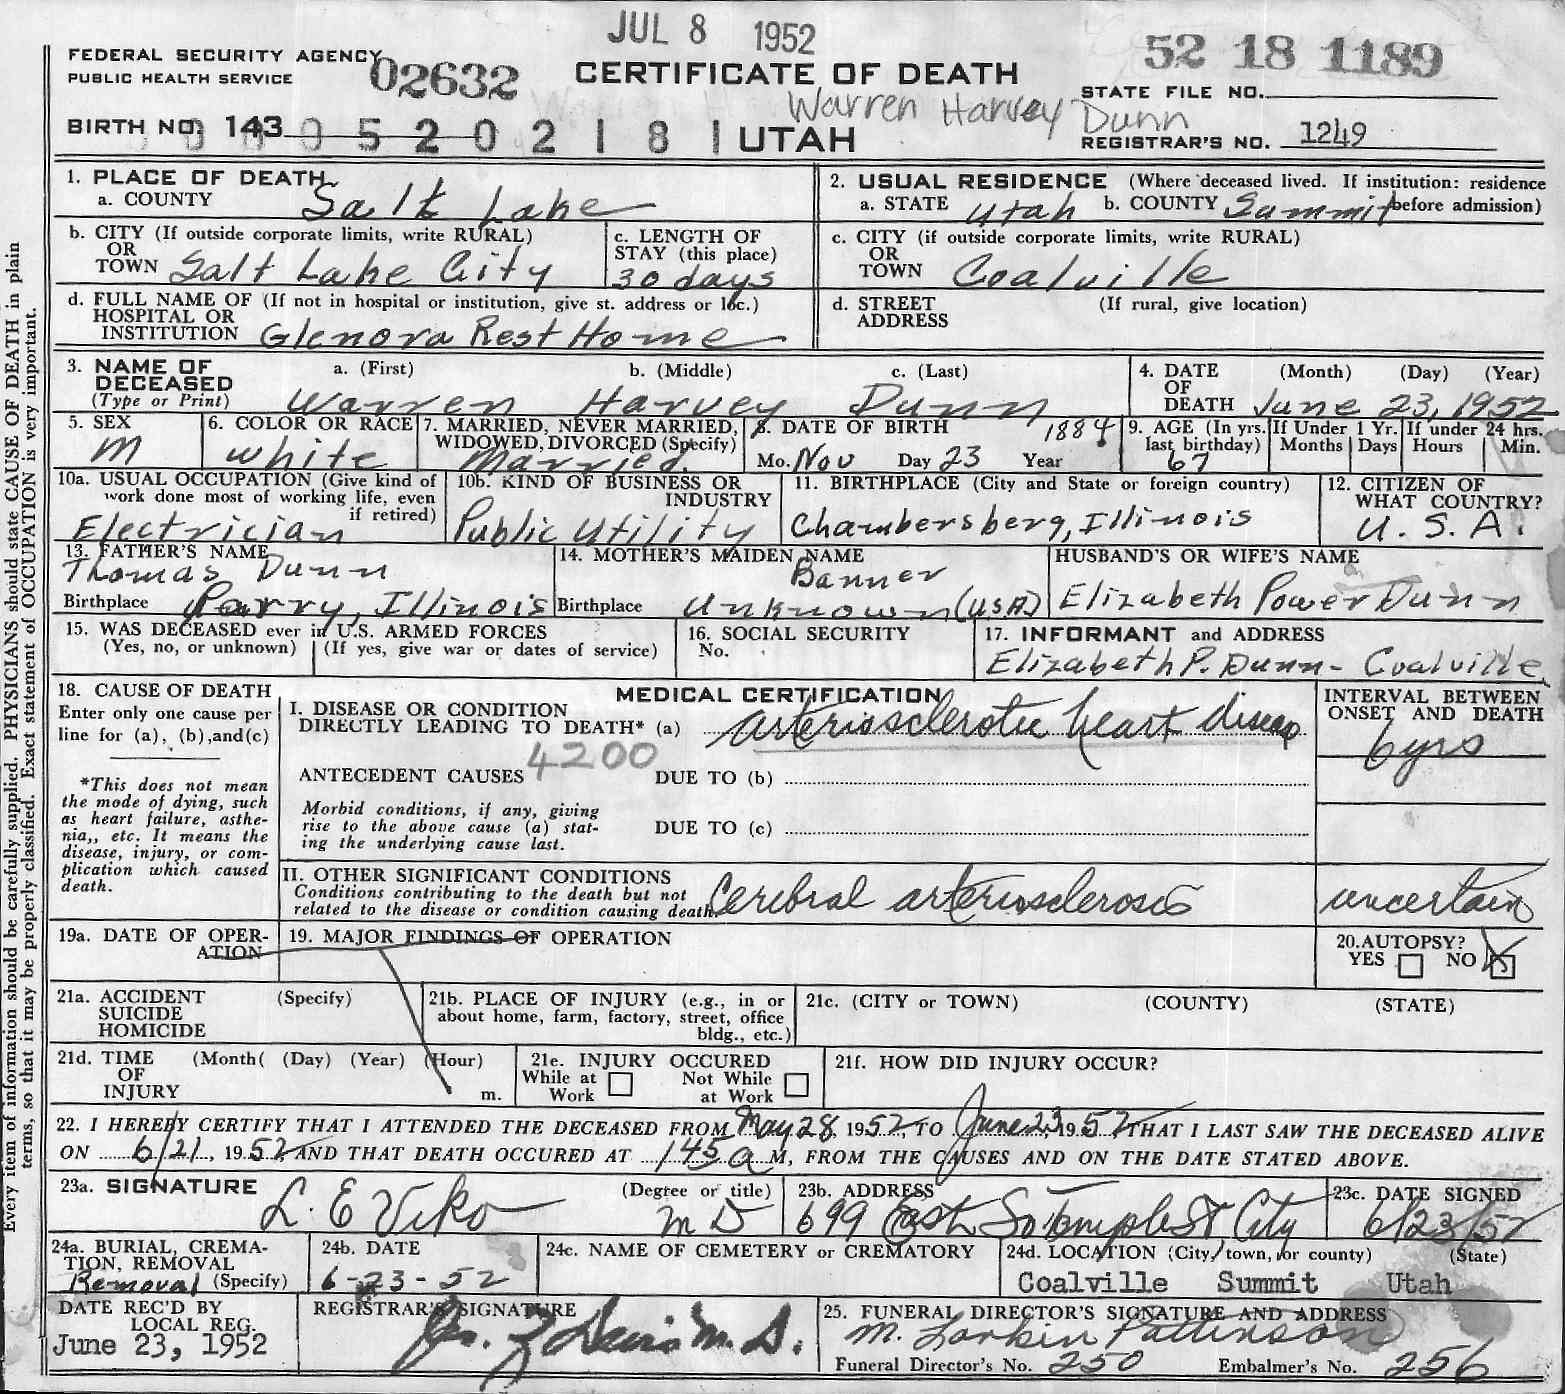 JUL 8 1952
FEDERAL SECURITY AGENCY
PUBLIC HEALTH SERVICE
02632
CERTIFICATE OF DEATH
52 18 1189
STATE FILE NO.
Warren Harvey Dunn
BIRTH NO. 143
0 5 2 0 2 1 8 1
UTAH
REGISTRAR'S NO. 1249
1. PLACE OF DEATH
a. COUNTY Salt Lake
2. USUAL RESIDENCE (Where deceased lived. If institution: residence before admission)
a. STATE Utah b. COUNTY Summit
b. CITY (If outside corporate limits, write RURAL)
OR
TOWN Salt Lake City
c. LENGTH OF
STAY (this place)
30 days
c. CITY (if outside corporate limits, write RURAL)
OR
TOWN Coalville
d. FULL NAME OF (If not in hospital or institution, give st. address or loc.)
HOSPITAL OR
INSTITUTION Glenora Rest Home
d. STREET (If rural, give location)
ADDRESS
3. NAME OF
DECEASED
(Type or Print)
a. (First) b. (Middle) c. (Last)
Warren Harvey Dunn
4. DATE (Month) (Day) (Year)
OF
DEATH June 23, 1952
5. SEX
M
6. COLOR OR RACE
white
7. MARRIED, NEVER MARRIED,
WIDOWED, DIVORCED (Specify)
Married.
8. DATE OF BIRTH 1884
Mo. Nov Day 23 Year
9. AGE (In yrs.
last birthday)
67
If Under 1 Yr.
Months Days
If under 24 hrs.
Hours Min.
10a. USUAL OCCUPATION (Give kind of
work done most of working life, even
if retired)
Electrician
10b. KIND OF BUSINESS OR
INDUSTRY
Public Utility
11. BIRTHPLACE (City and State or foreign country)
Chambersberg, Illinois
12. CITIZEN OF
WHAT COUNTRY?
U.S.A.
13. FATHER'S NAME
Thomas Dunn
Birthplace Parry, Illinois
14. MOTHER'S MAIDEN NAME
Banner
Birthplace Unknown (U.S.A.)
HUSBAND'S OR WIFE'S NAME
Elizabeth Power Dunn
15. WAS DECEASED ever in U.S. ARMED FORCES
(Yes, no, or unknown) (If yes, give war or dates of service)
16. SOCIAL SECURITY
No.
17. INFORMANT and ADDRESS
Elizabeth P. Dunn - Coalville
18. CAUSE OF DEATH
Enter only one cause per
line for (a), (b), and (c)
*This does not mean
the mode of dying, such
as heart failure, asthe-
nia,, etc. It means the
disease, injury, or com-
plication which caused
death.
MEDICAL CERTIFICATION
I. DISEASE OR CONDITION
DIRECTLY LEADING TO DEATH* (a) arteriosclerotic heart disease
4200
ANTECEDENT CAUSES
DUE TO (b)
Morbid conditions, if any, giving
rise to the above cause (a) stat-
ing the underlying cause last.
DUE TO (c)
INTERVAL BETWEEN
ONSET AND DEATH
6 yrs
II. OTHER SIGNIFICANT CONDITIONS
Conditions contributing to the death but not
related to the disease or condition causing death.
Cerebral arteriosclerosis
uncertain
19a. DATE OF OPER-
ATION
19. MAJOR FINDINGS OF OPERATION
20. AUTOPSY?
YES NO X
21a. ACCIDENT (Specify)
SUICIDE
HOMICIDE
21b. PLACE OF INJURY (e.g., in or
about home, farm, factory, street, office
bldg., etc.)
21c. (CITY or TOWN) (COUNTY) (STATE)
21d. TIME (Month( (Day) (Year) (Hour)
OF
INJURY m.
21e. INJURY OCCURED
While at Work Not While at Work
21f. HOW DID INJURY OCCUR?
22. I HEREBY CERTIFY THAT I ATTENDED THE DECEASED FROM May 28, 1952, TO June 23, 1952 THAT I LAST SAW THE DECEASED ALIVE
ON 6/21, 1952, AND THAT DEATH OCCURED AT 145 a M, FROM THE CAUSES AND ON THE DATE STATED ABOVE.
23a. SIGNATURE (Degree or title)
L. E Viko MD
23b. ADDRESS
699 East So Temple St City
23c. DATE SIGNED
6/23/52
24a. BURIAL, CREMA-
TION, REMOVAL
Removal (Specify)
24b. DATE
6-23-52
24c. NAME OF CEMETERY or CREMATORY
24d. LOCATION (City, town, or county) (State)
Coalville Summit Utah
DATE REC'D BY
LOCAL REG.
June 23, 1952
REGISTRAR'S SIGNATURE
Davis M.D.
25. FUNERAL DIRECTOR'S SIGNATURE AND ADDRESS
M. Larkin Pattinson
Funeral Director's No. 250 Embalmer's No. 256
Every item of information should be carefully supplied. PHYSICIANS should state CAUSE OF DEATH in plain
terms, so that it may be properly classified. Exact statement of OCCUPATION is very important.